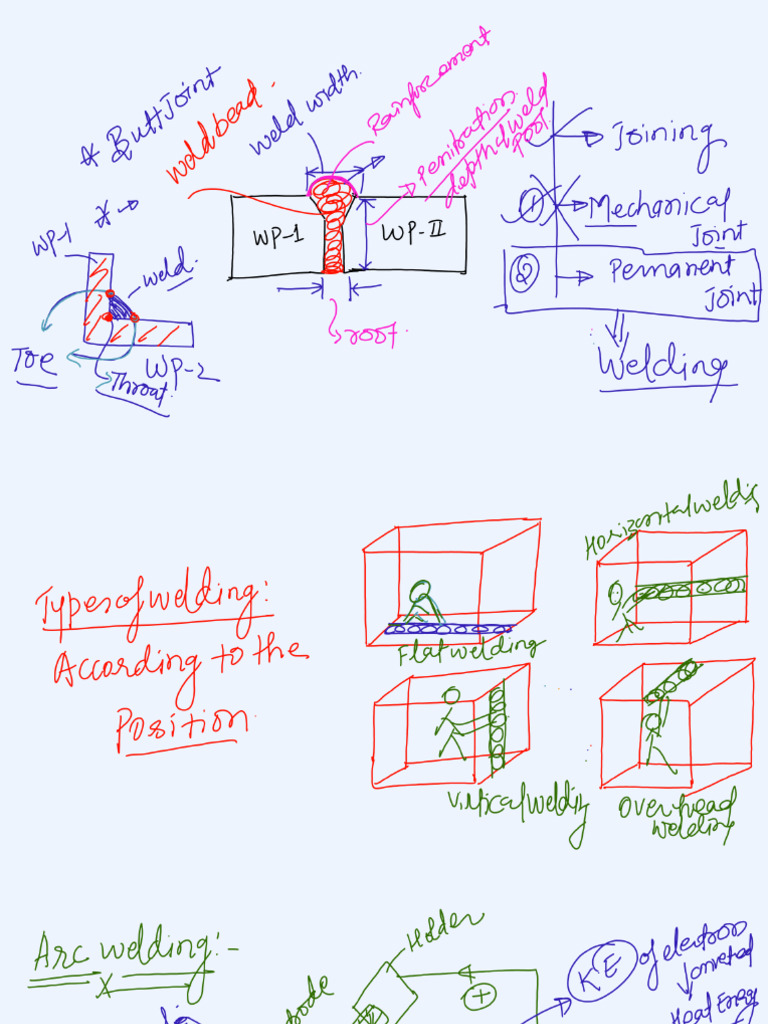 * Butt Joint
weld bead.
weld width.
Rainforcement
Penitration
depth of weld
Pool.
Joining
① Mechanical
Joint
② Permanent
Joint
Welding
WP-1
WP-II
root.
WP-1
weld.
Toe
Throat
WP-2
Types of welding:
According to the
Position
Flat welding
Horizontal weldig
Virtical weldig
Over head
welding
Arc welding:-
Holder
+
KE of electron
converted
Heat Energ